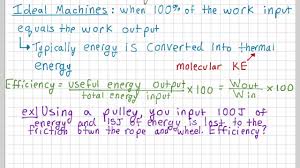 Ideal Machines: when 100% of the work input
equals the work output
↳ Typically energy is converted into thermal
energy
molecular KE
Efficiency = useful energy output / total energy input x100 = Wout / Win x100
ex) Using a pulley, you input 100J of
energy and 15J of energy is lost to the
friction btwn the rope and wheel. Efficiency?